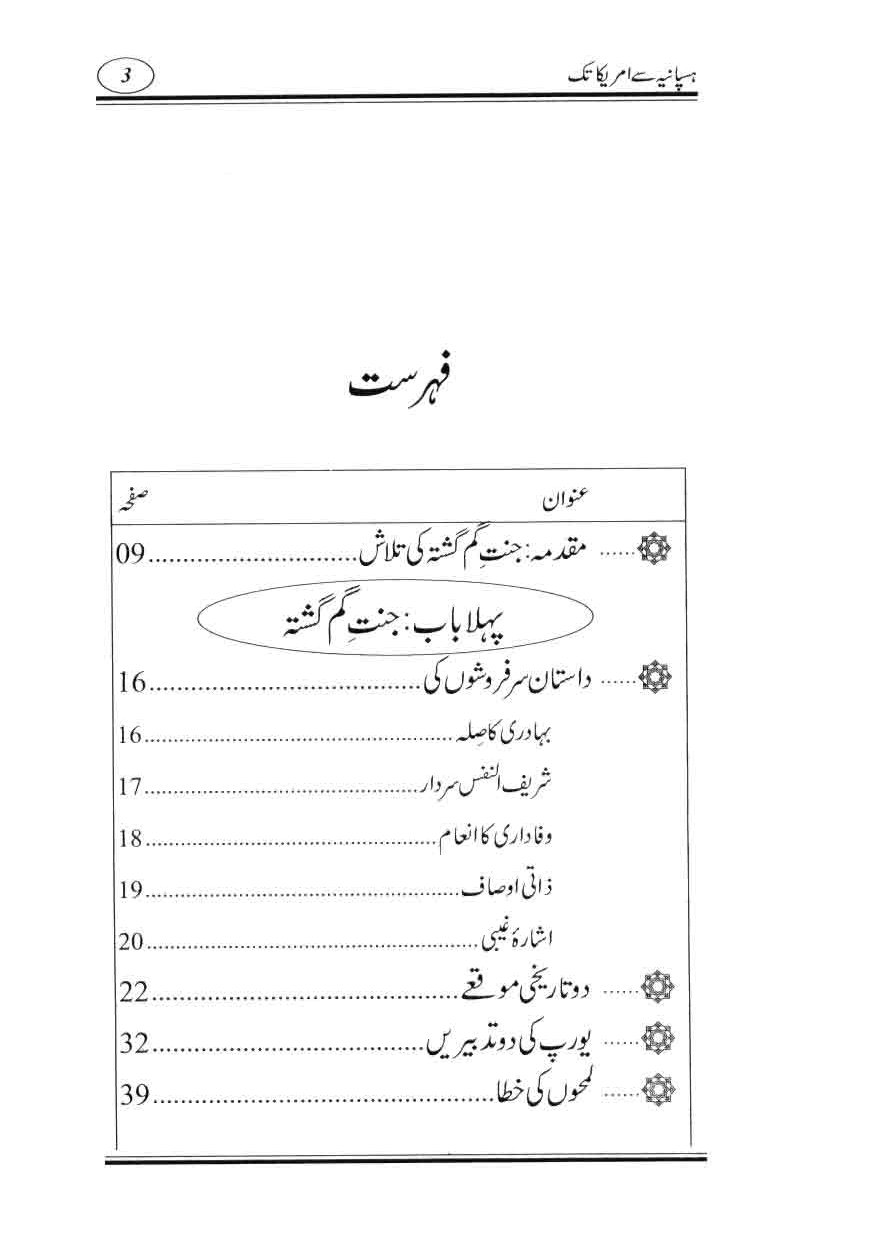 ہسپانیہ سے امریکا تک 3
فہرست
عنوان صفحہ
...... مقدمہ: جنتِ گم گشتہ کی تلاش .............................. 09
پہلا باب: جنتِ گم گشتہ
...... داستان سرفروشوں کی ....................................... 16
بہادری کا صِلہ .................................................... 16
شریف النفس سردار ............................................. 17
وفاداری کا انعام ................................................. 18
ذاتی اوصاف ..................................................... 19
اشارۂ غیبی ........................................................ 20
...... دو تاریخی موقعے ............................................ 22
...... یورپ کی دو تدبیریں ....................................... 32
...... لمحوں کی خطا ................................................ 39